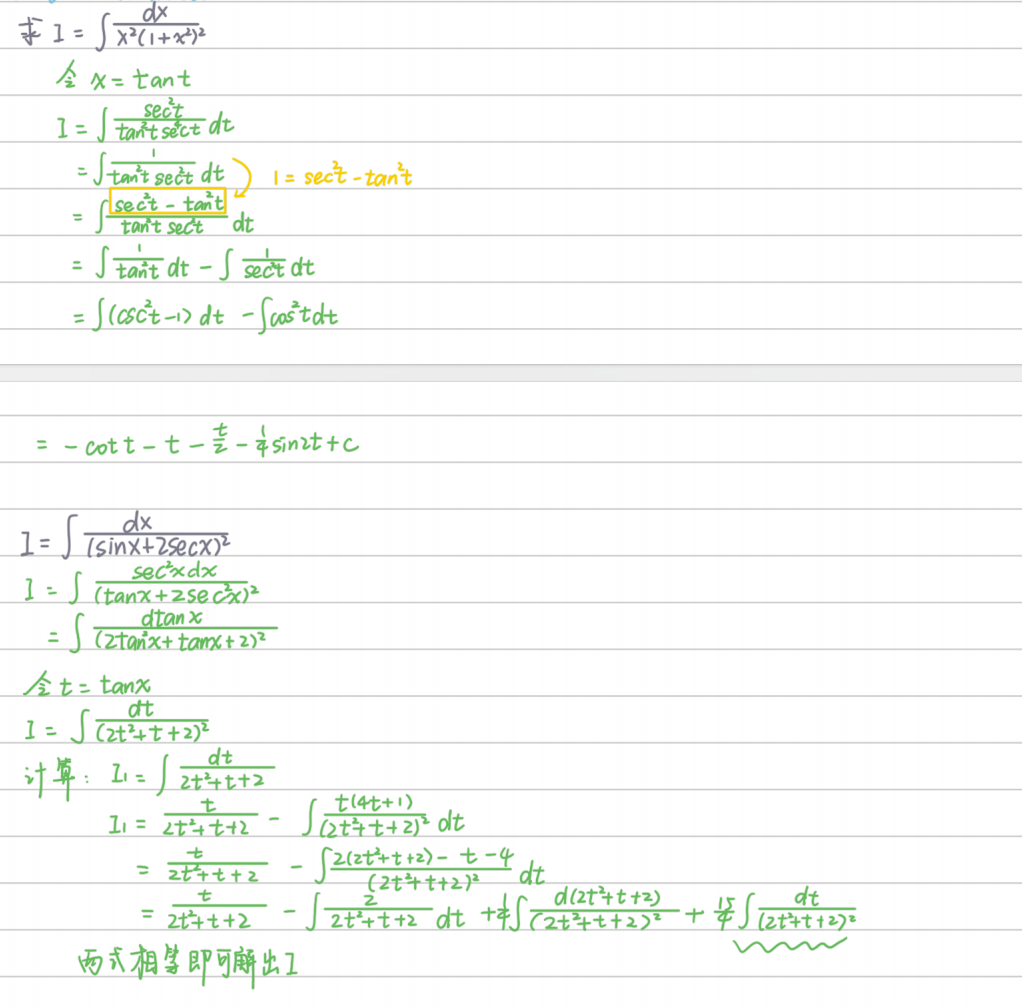 求 I = ∫ dx / (x²(1+x²)²)
令 x = tan t
I = ∫ sec²t / (tan²t sec⁴t) dt
= ∫ 1 / (tan²t sec²t) dt  1 = sec²t - tan²t
= ∫ (sec²t - tan²t) / (tan²t sec²t) dt
= ∫ 1/tan²t dt - ∫ 1/sec²t dt
= ∫(csc²t-1) dt - ∫cos²t dt
= -cot t - t - t/2 - 1/4 sin2t + C
I = ∫ dx / (sinx+2secx)²
I = ∫ sec²x dx / (tanx+2sec²x)²
= ∫ dtanx / (2tan²x+tanx+2)²
令 t = tanx
I = ∫ dt / (2t²+t+2)²
计算: I₁ = ∫ dt / (2t²+t+2)
I₁ = t / (2t²+t+2) - ∫ t(4t+1) / (2t²+t+2)² dt
= t / (2t²+t+2) - ∫ (2(2t²+t+2) - t - 4) / (2t²+t+2)² dt
= t / (2t²+t+2) - ∫ 2 / (2t²+t+2) dt + 1/4 ∫ d(2t²+t+2) / (2t²+t+2)² + 15/4 ∫ dt / (2t²+t+2)²
两式相等即可解出I